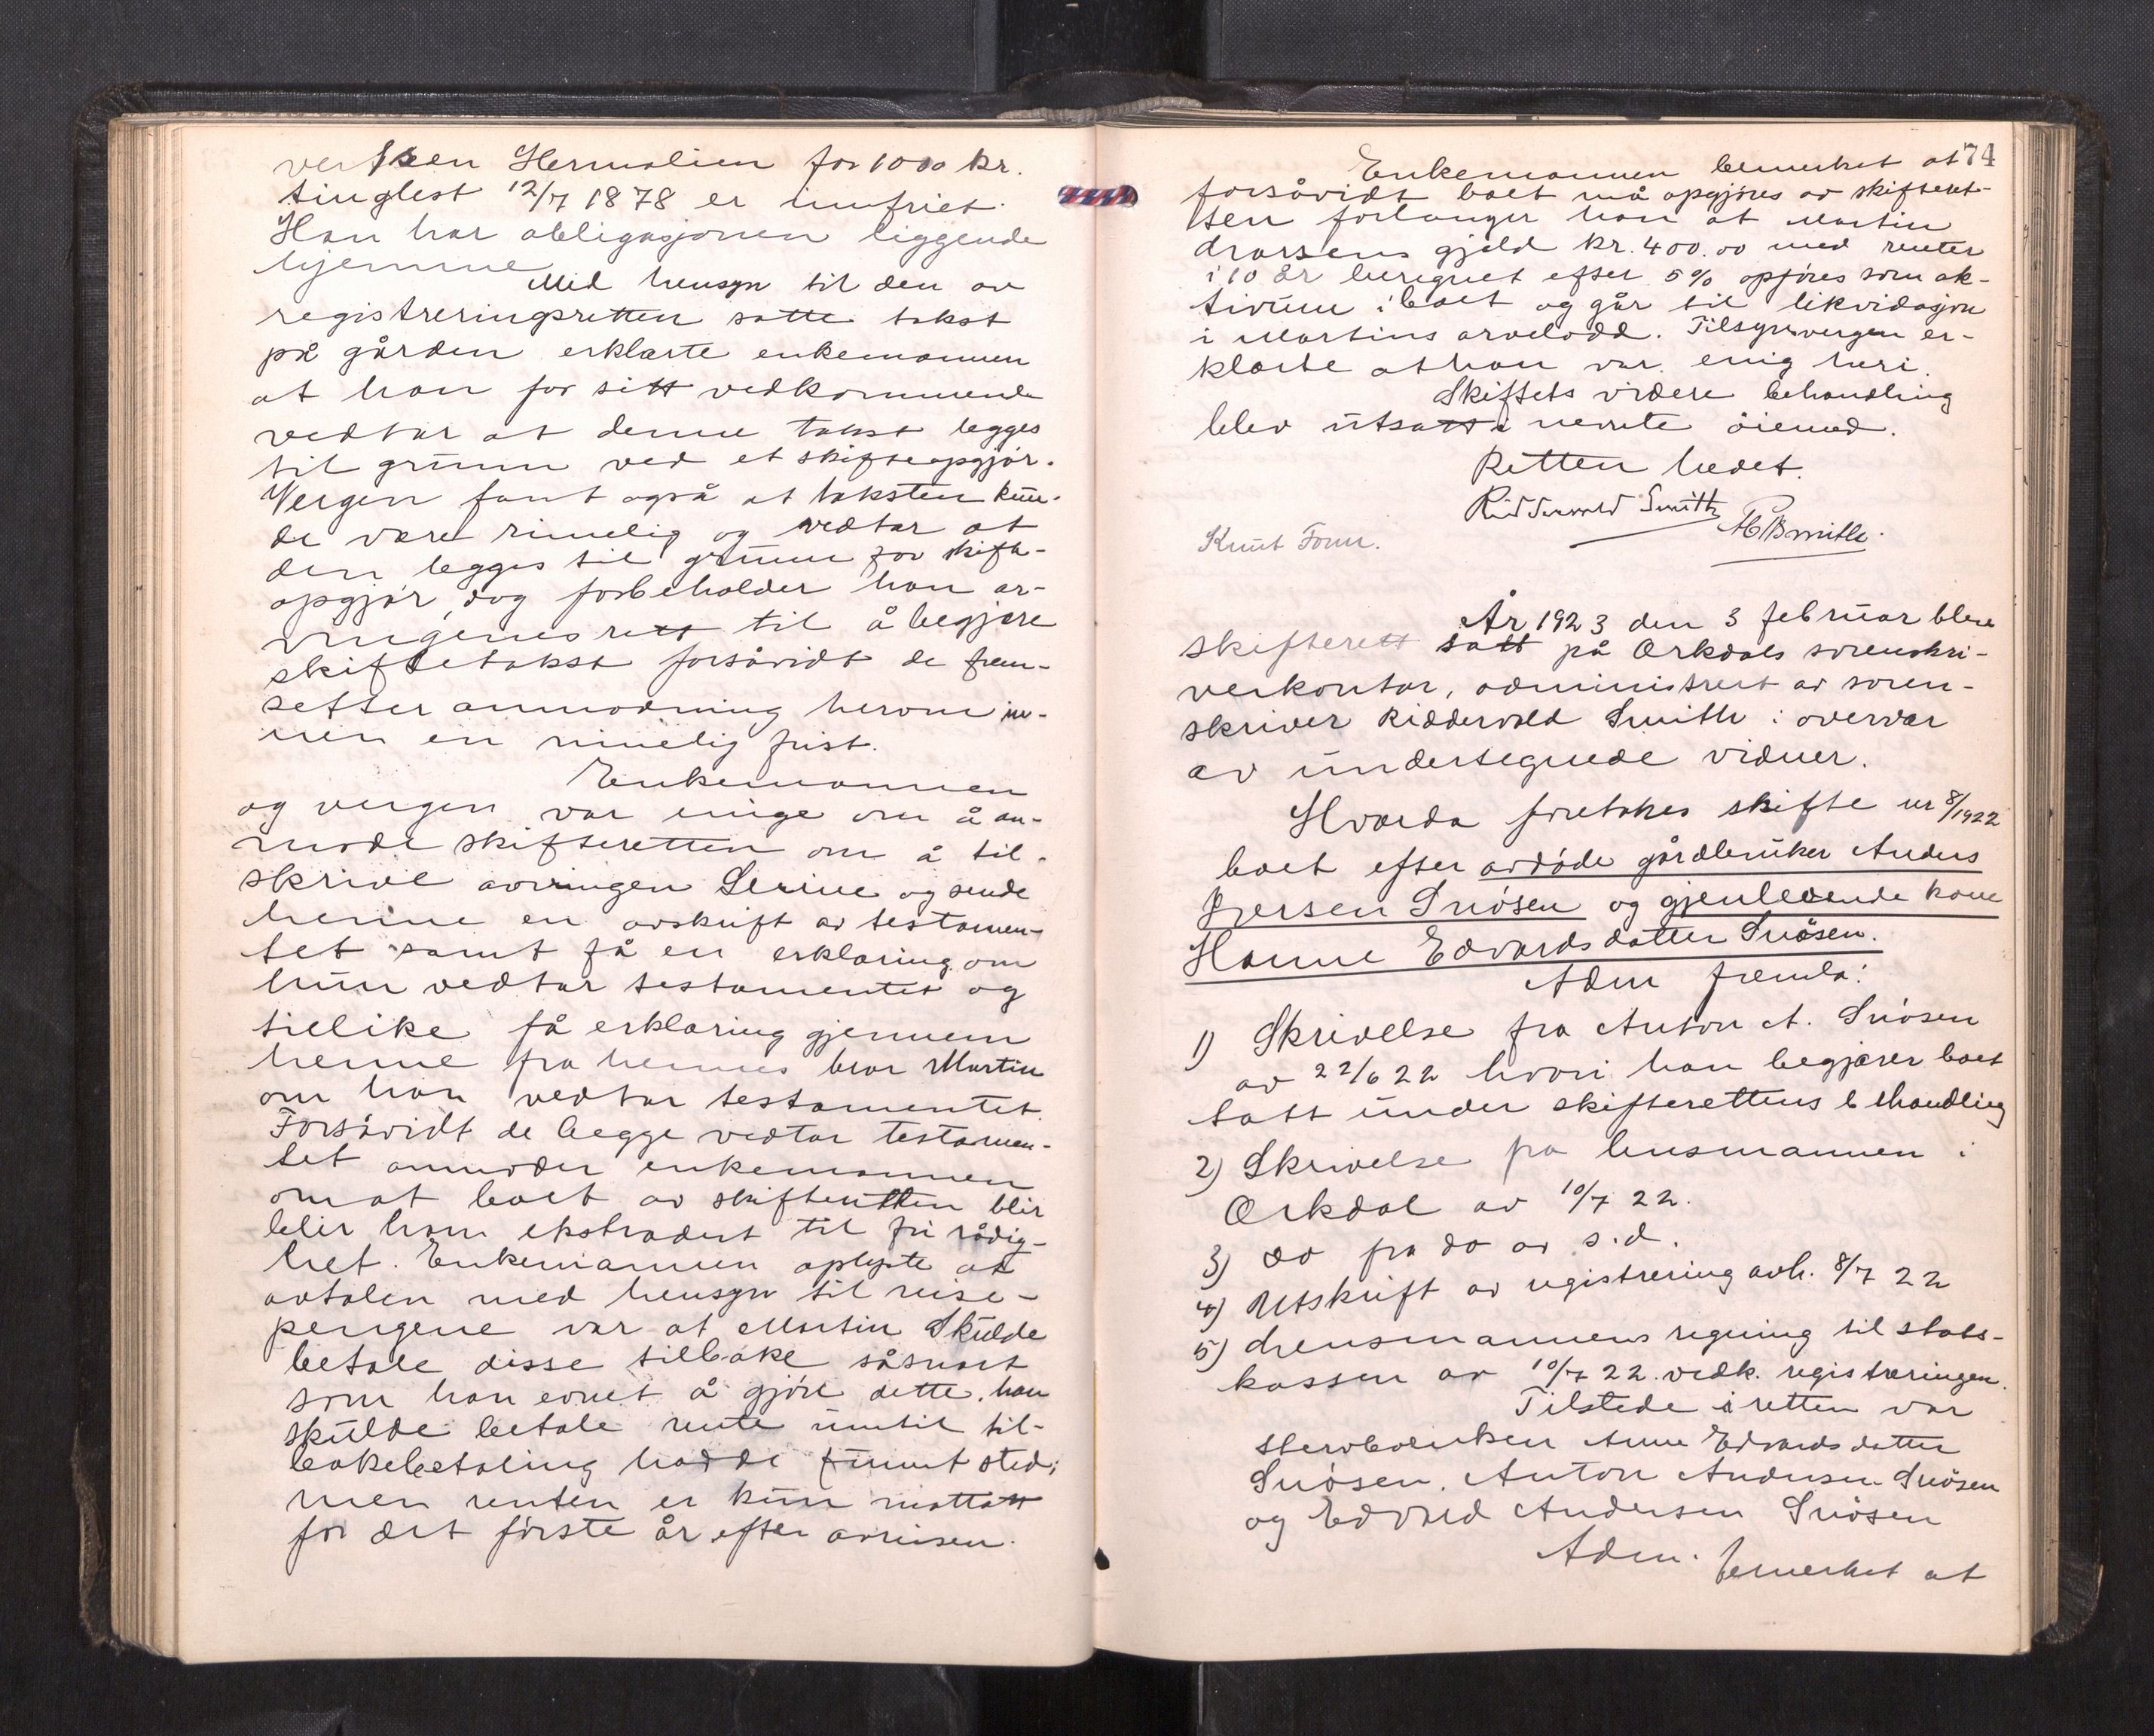 Hermalien for 1000 kr.
tinglest 12/7 1878 er innfriet.
Han har obligasjonen liggende
hjemme
Med hensyn til den av
registreringsretten satte takst
på gården erklærte enkemannen
at han for sitt vedkommende
vedtar at denne takst legges
til grunn ved et skifteopgjör.
Vergen fant også at taksten kun-
de være rimelig og vedtar at
den legges til grunn for skifte-
opgjör, dog forbeholder han ar-
vingenes rett til å begjære
skiftetakst forsåvidt de frem-
setter anmodning herom in-
nen en rimelig frist.
Enkemannen
og vergen var enige om å an-
mode skifteretten om å til-
skrive arvingen Serine og sende
henne en avskrift av testamen-
tet samt få en erklæring om
hun vedtar testamentet og
tillike få erklæring gjennem
henne fra hennes bror Martin
om han vedtar testamentet.
Forsåvidt de begge vedtar testamen-
tet anmoder enkemannen
om at boet av skifteretten blir
blir ham ekstradert til fri rådig-
het. Enkemannen oplyste at
avtalen med hensyn til reise-
pengene var at Martin Skulde
betale disse tilbake såsnart
som han evnet å gjöre dette. han
skulde betale rente inntil til-
bakebetaling hadde funnet sted;
men renten er kun mottatt
for det förste år efter avreisen.
74
Enkemannen bemerket at
forsåvidt boet må opgjöres av skifteret-
ten forlanger han at Martin
Larssens gjeld kr. 400.00 med renter
i 10 år beregnet efter 5% opföres som ak-
tivum i boet og går til likvidasjon
i Martins arvelodd. Tilsynsvergen er-
klærte at han var enig heri.
Skiftets videre behandling
blev utsatt i nevnte öiemed.
Retten hevet.
Riddervold Smith
Knut Fonn.
År 1923 den 3 februar blev
skifterett satt på Orkdals sorenskri-
verkontor, administrert av soren-
skriver Riddervold Smith i overvær
av undertegnede vidner.
Hvorda foretokes skifte nr 8/1922
boet efter avdöde gårdbruker Anders
Iversen Snösen og gjenlevende kone
Hanne Edvardsdatter Snösen.
Adm fremla:
1) Skrivelse fra Anton A. Snösen
av 22/6 22 hvori han begjærer boet
tatt under skifterettens behandling
2) Skrivelse fra lensmannen i
Orkdal av 10/7 22.
3) do fra do av s.d.
4) Utskrift av registrering avh. 8/7 22
5) Lensmannens regning til stats-
kassen av 10/7 22 vedk. registreringen.
Tilstede i retten var
stervboenken Anne Edvardsdatter
Snösen, Anton Andersen Snösen
og Edvard Andersen Snösen
Adm. bemerket at